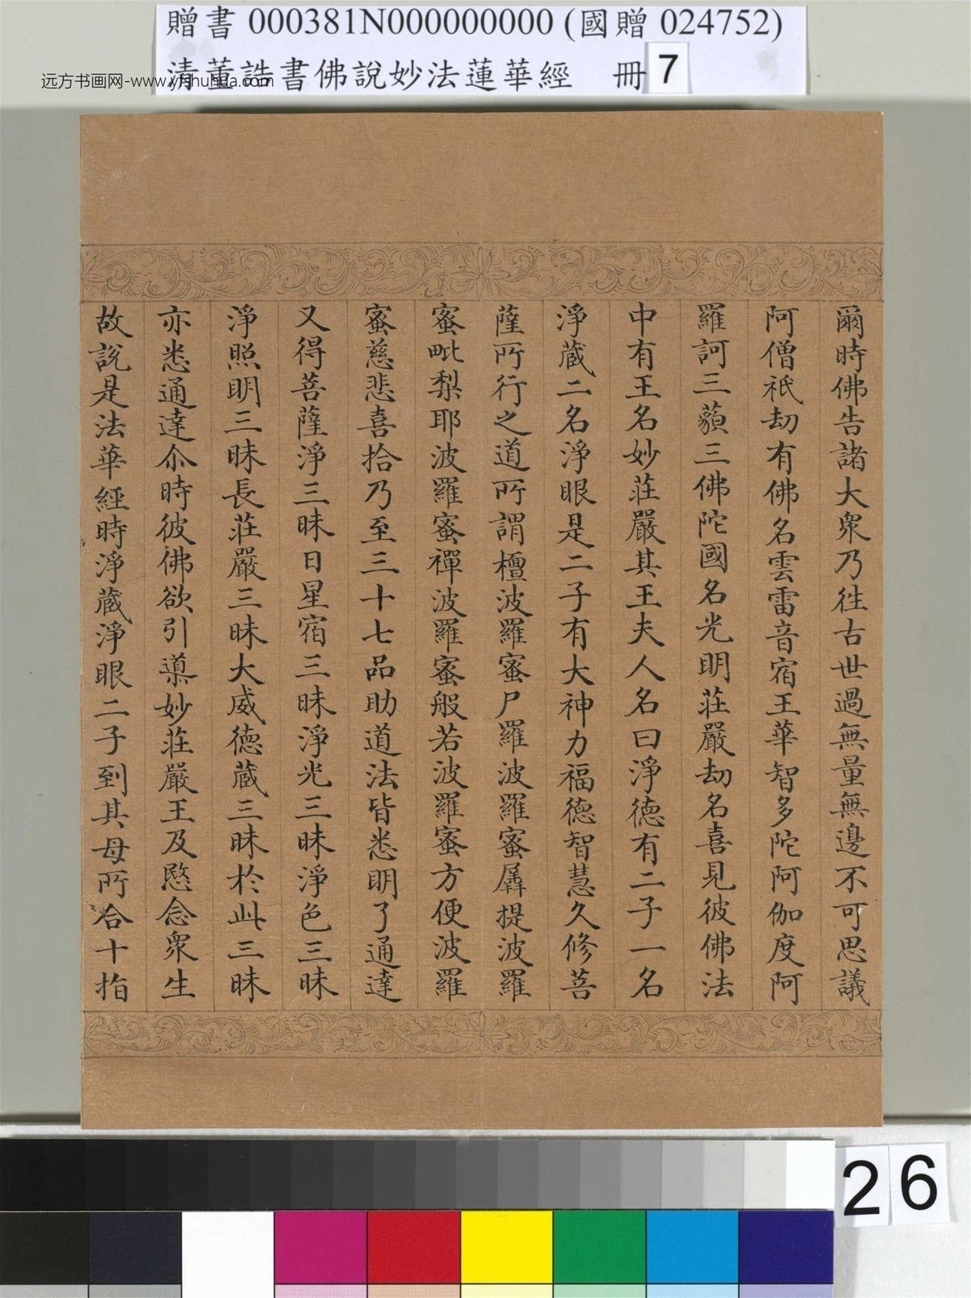 贈書 000381N000000000 (國贈 024752)
清董誥書佛說妙法蓮華經　冊 7
远方书画网-www.yfshuhua.com
爾時佛告諸大衆乃往古世過無量無邊不可思議
阿僧祇劫有佛名雲雷音宿王華智多陀阿伽度阿
羅訶三藐三佛陀國名光明莊嚴劫名喜見彼佛法
中有王名妙莊嚴其王夫人名曰淨德有二子一名
淨蔵二名淨眼是二子有大神力福德智慧久修菩
薩所行之道所謂檀波羅蜜尸羅波羅蜜羼提波羅
蜜毗梨耶波羅蜜禪波羅蜜般若波羅蜜方便波羅
蜜慈悲喜捨乃至三十七品助道法皆悉明了通達
又得菩薩淨三昧日星宿三昧淨光三昧淨色三昧
淨照明三昧長莊嚴三昧大威德蔵三昧於此三昧
亦悉通達尒時彼佛欲引導妙莊嚴王及愍念衆生
故說是法華經時淨蔵淨眼二子到其母所合十指
26